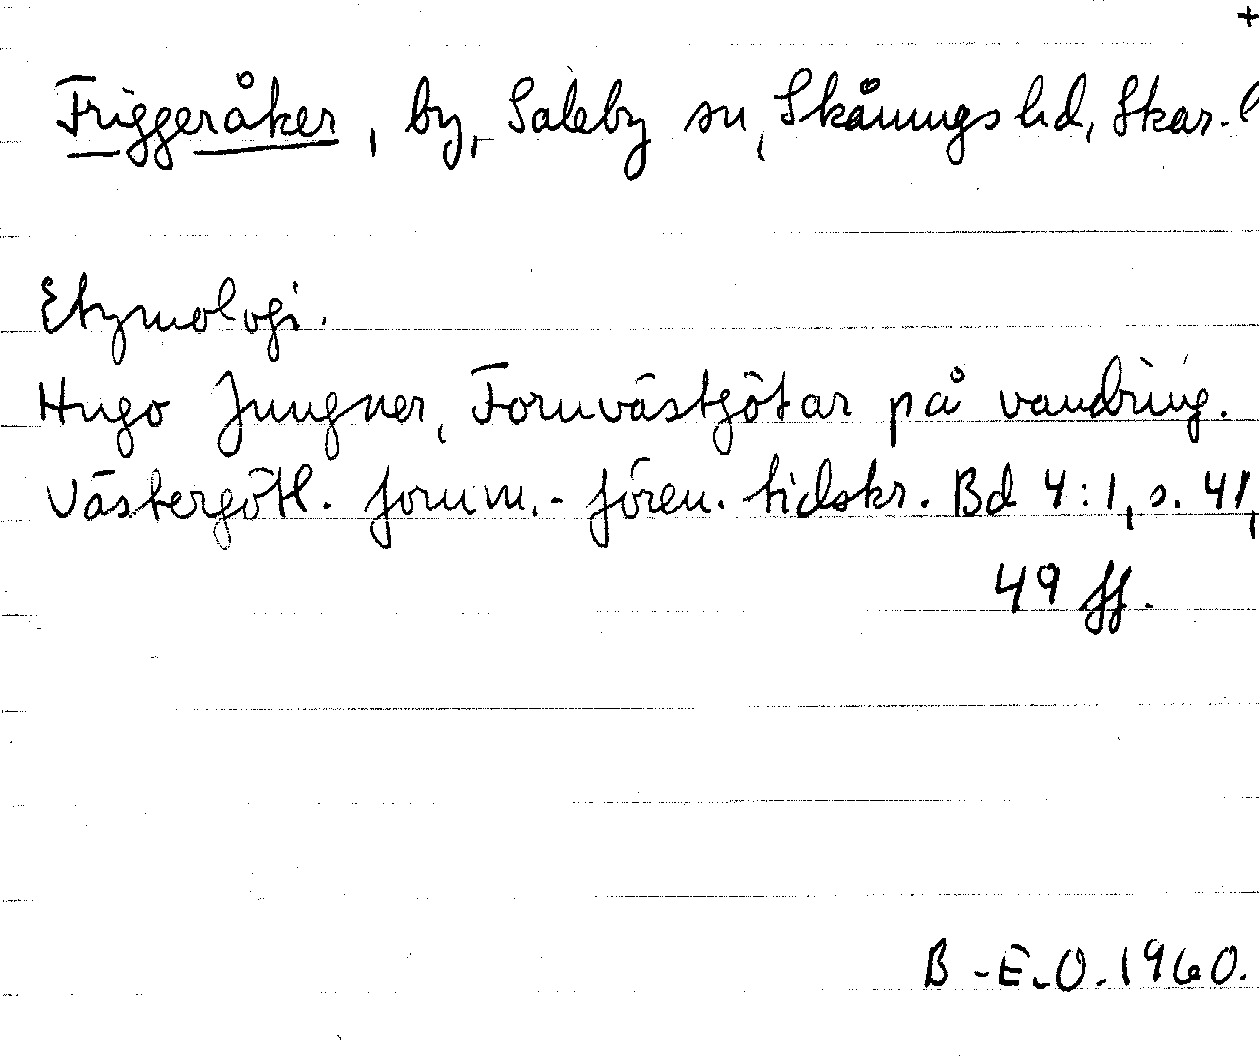 +
Friggeråker, by, Saleby sn, Skånings hd, Skar. l
Etymologi.
Hugo Jungner, Fornvästgötar på vandring.
Västergötl. fornm.-fören. tidskr. Bd 4:1, s. 41,
49 ff.
B-E.O. 1960.